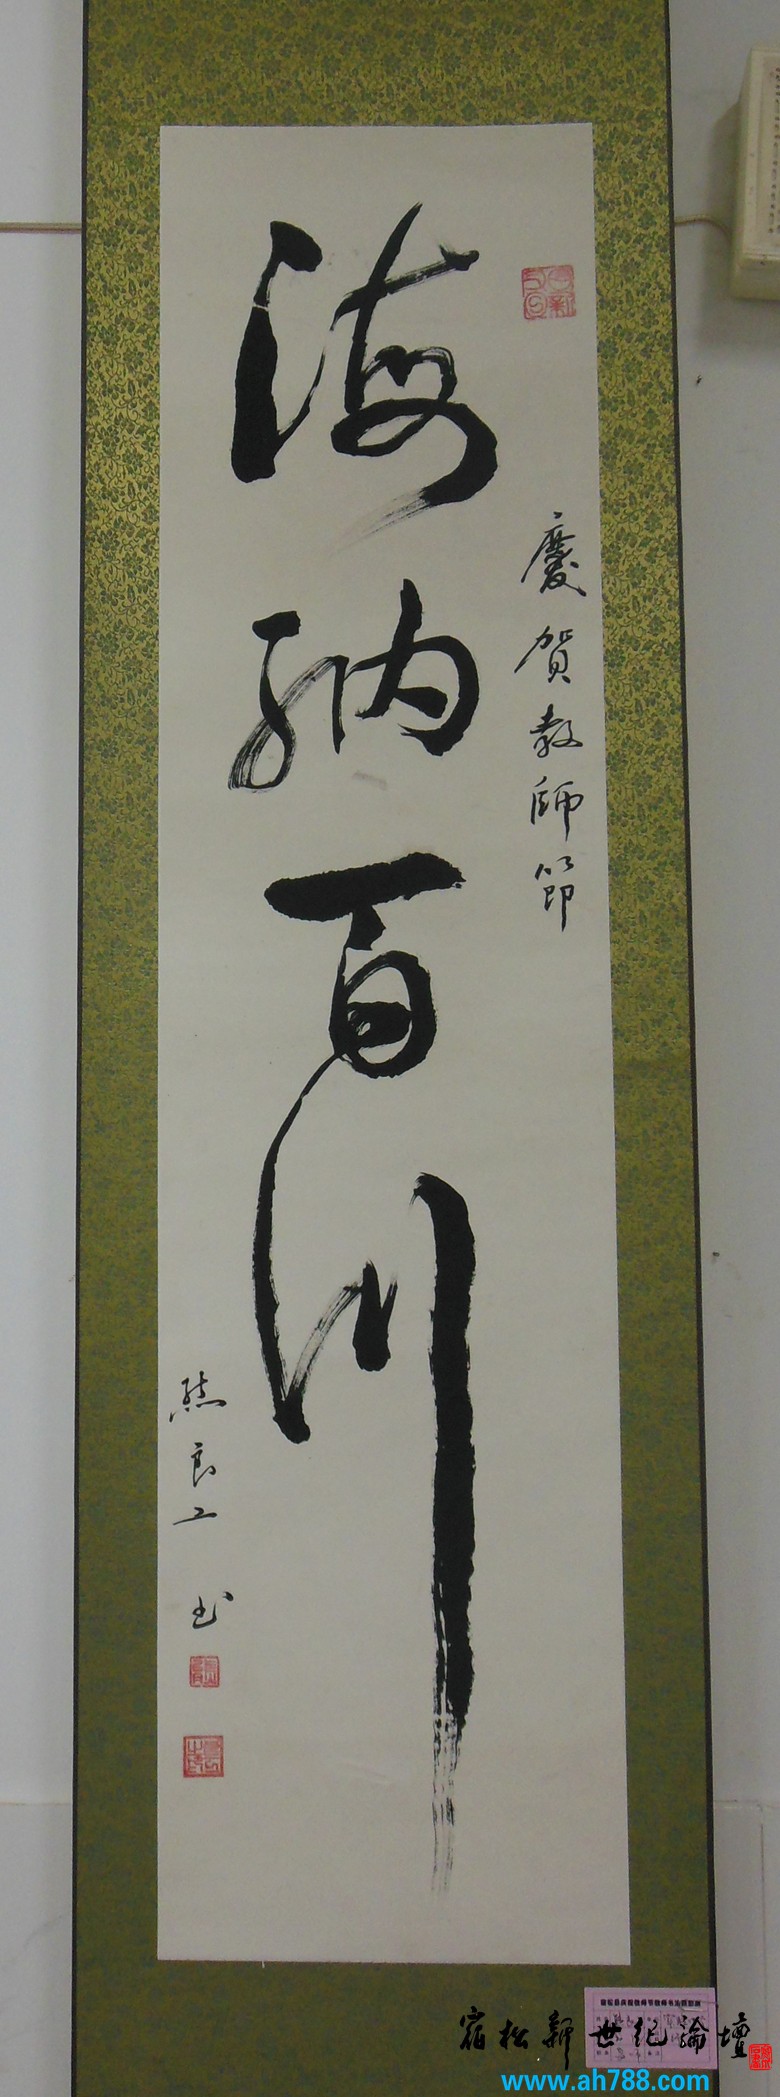 慶賀教師節
海納百川
熊良工 书
宿松新世纪論壇
www.ah788.com